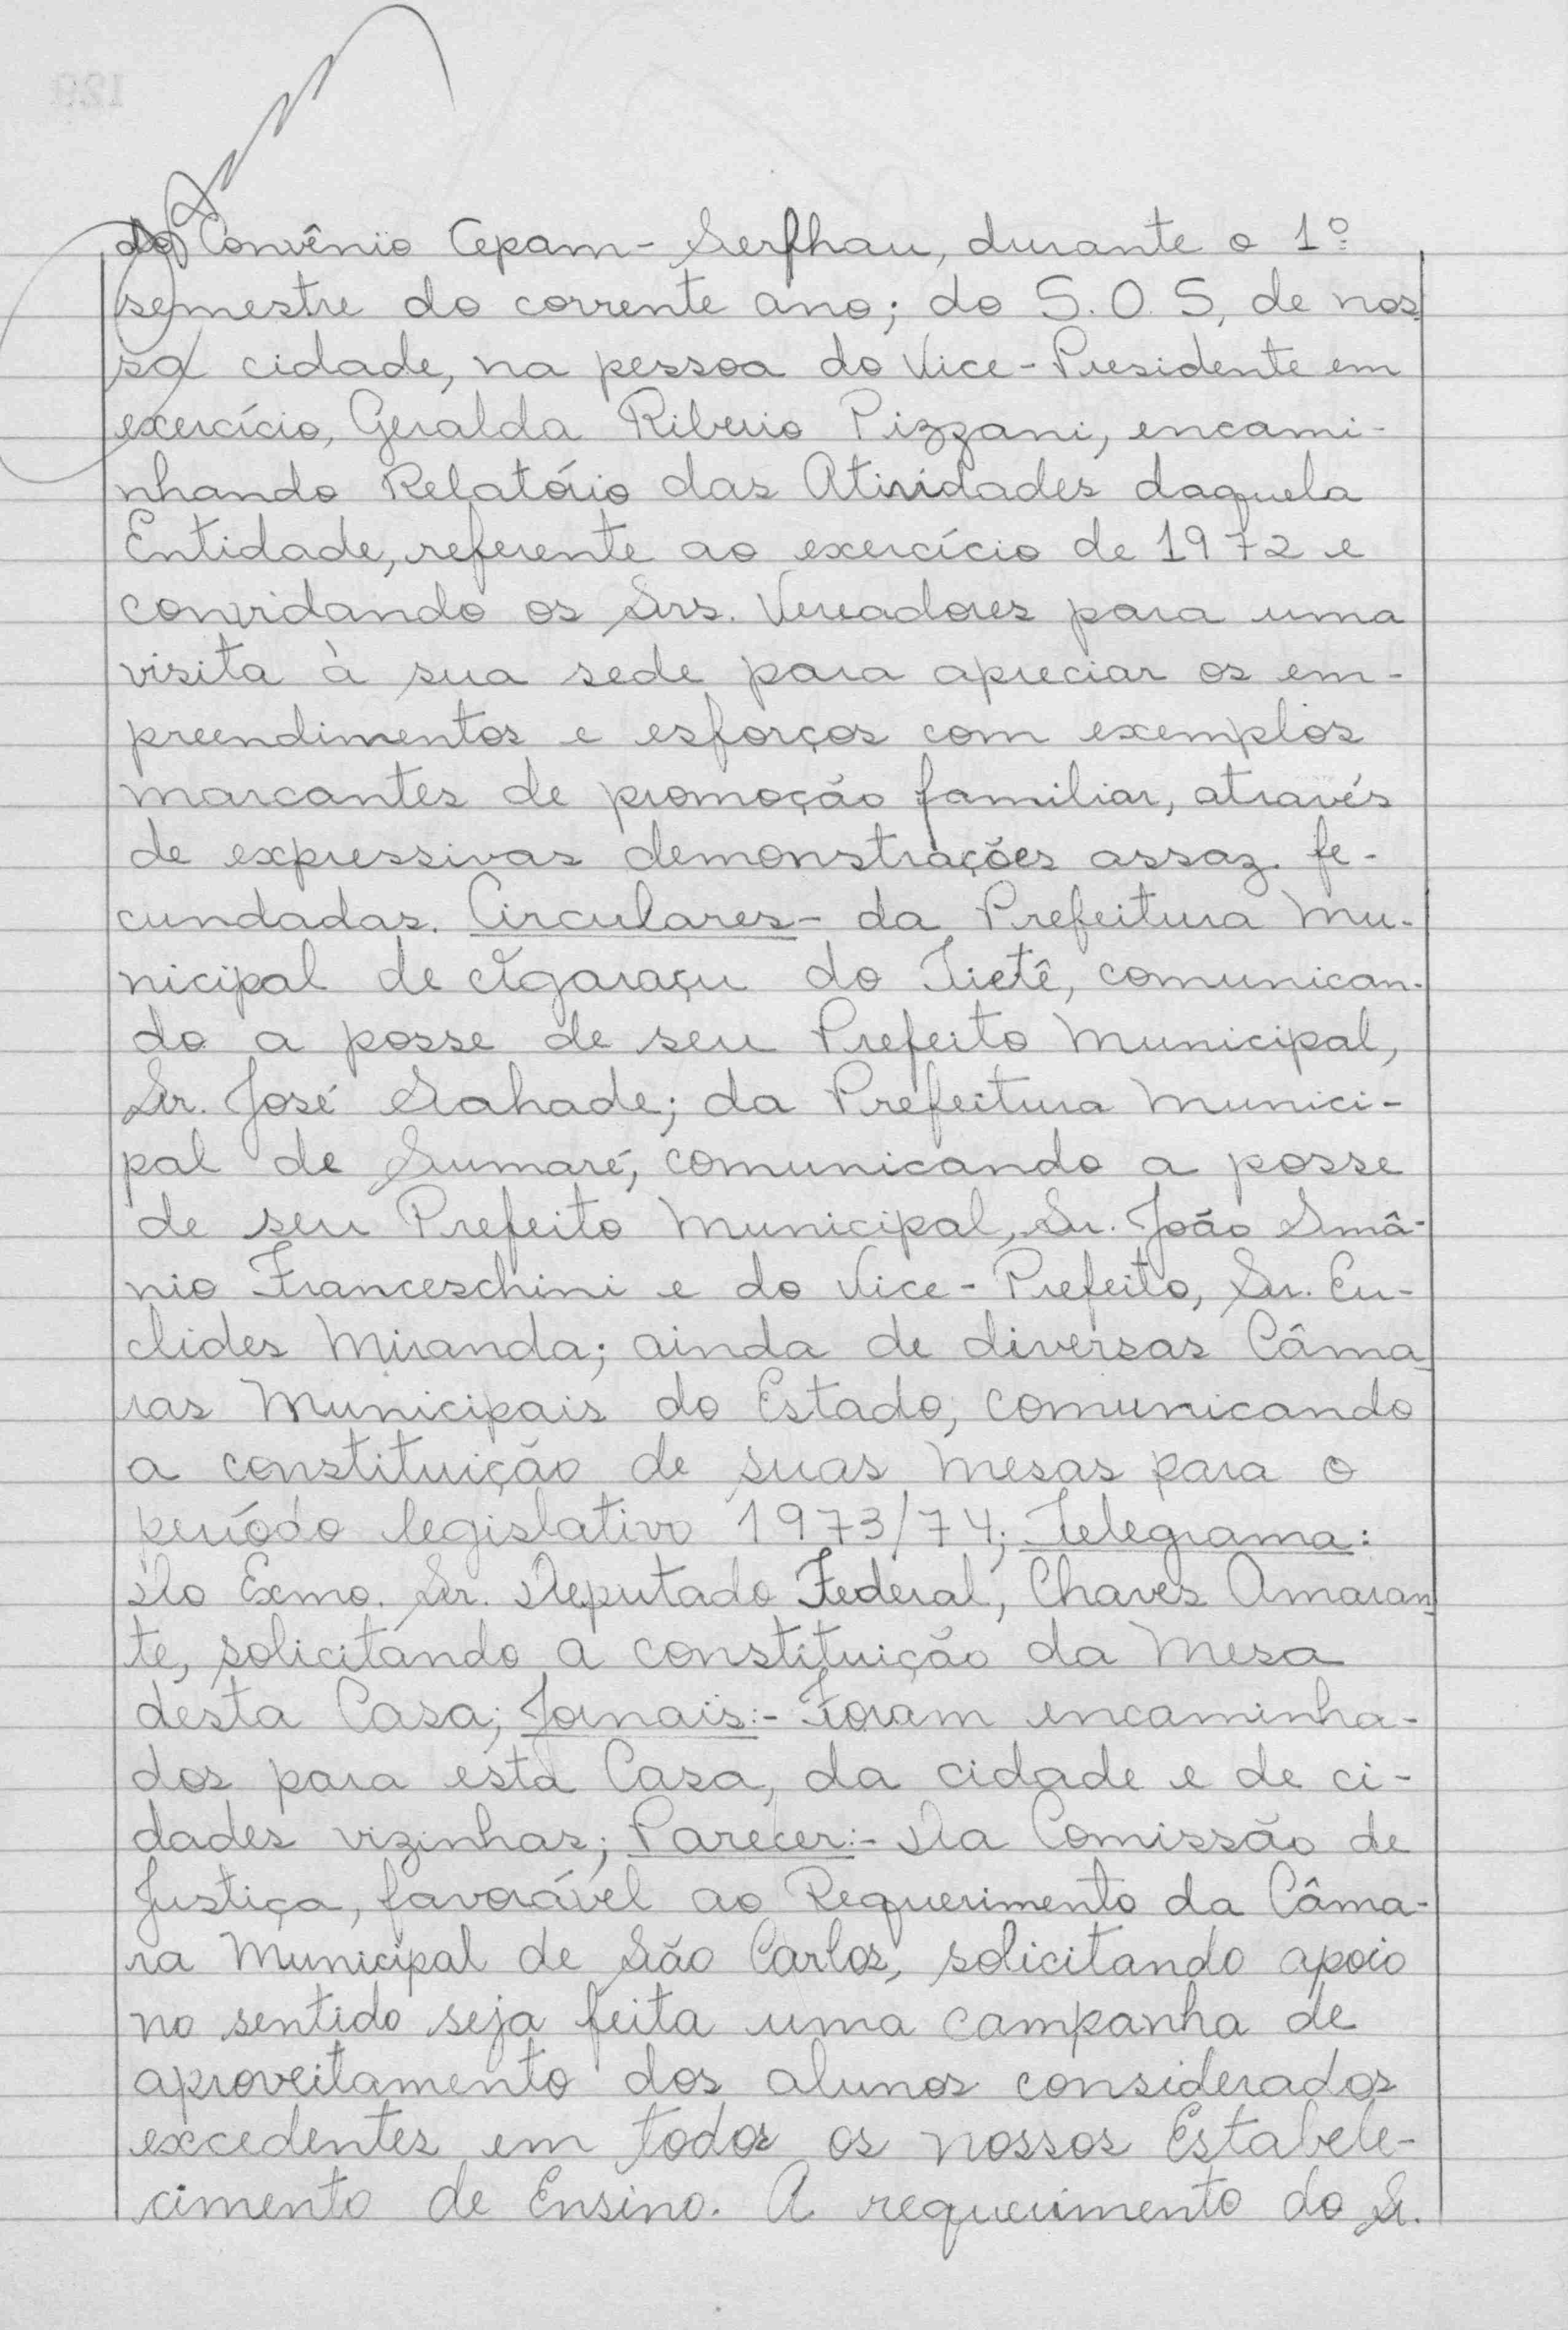 do Convênio Cepam - Serfhau, durante o 1º
semestre do corrente ano; do S.O.S, de nos-
sa cidade, na pessoa do Vice-Presidente em
exercício, Geralda Riberio Pizzani, encami-
nhando Relatório das Atividades daquela
Entidade, referente ao exercício de 1972 e
convidando os Srs. Vereadores para uma
visita à sua sede para apreciar os em-
preendimentos e esforços com exemplos
marcantes de promoção familiar, através
de expressivas demonstrações assaz fe-
cundadas. Circulares - da Prefeitura Mu-
nicipal de Igaraçu do Tietê, comunican-
do a posse de seu Prefeito Municipal,
Sr. José Sahade; da Prefeitura Munici-
pal de Sumaré, comunicando a posse
de seu Prefeito Municipal, Sr. João Smâ-
nio Franceschini e do Vice-Prefeito, Sr. Eu-
clides Miranda; ainda de diversas Câma-
ras Municipais do Estado, comunicando
a constituição de suas mesas para o
período legislativo 1973/74; Telegrama:
Do Exmo. Sr. Deputado Federal, Chaves Amaran-
te, solicitando a constituição da Mesa
desta Casa; Jornais:- Foram encaminha-
dos para esta Casa, da cidade e de ci-
dades vizinhas; Parecer:- Da Comissão de
Justiça, favorável ao Requerimento da Câma-
ra Municipal de São Carlos, solicitando apoio
no sentido seja feita uma campanha de
aproveitamento dos alunos considerados
excedentes em todos os nossos Estabele-
cimento de Ensino. A requerimento do Sr.